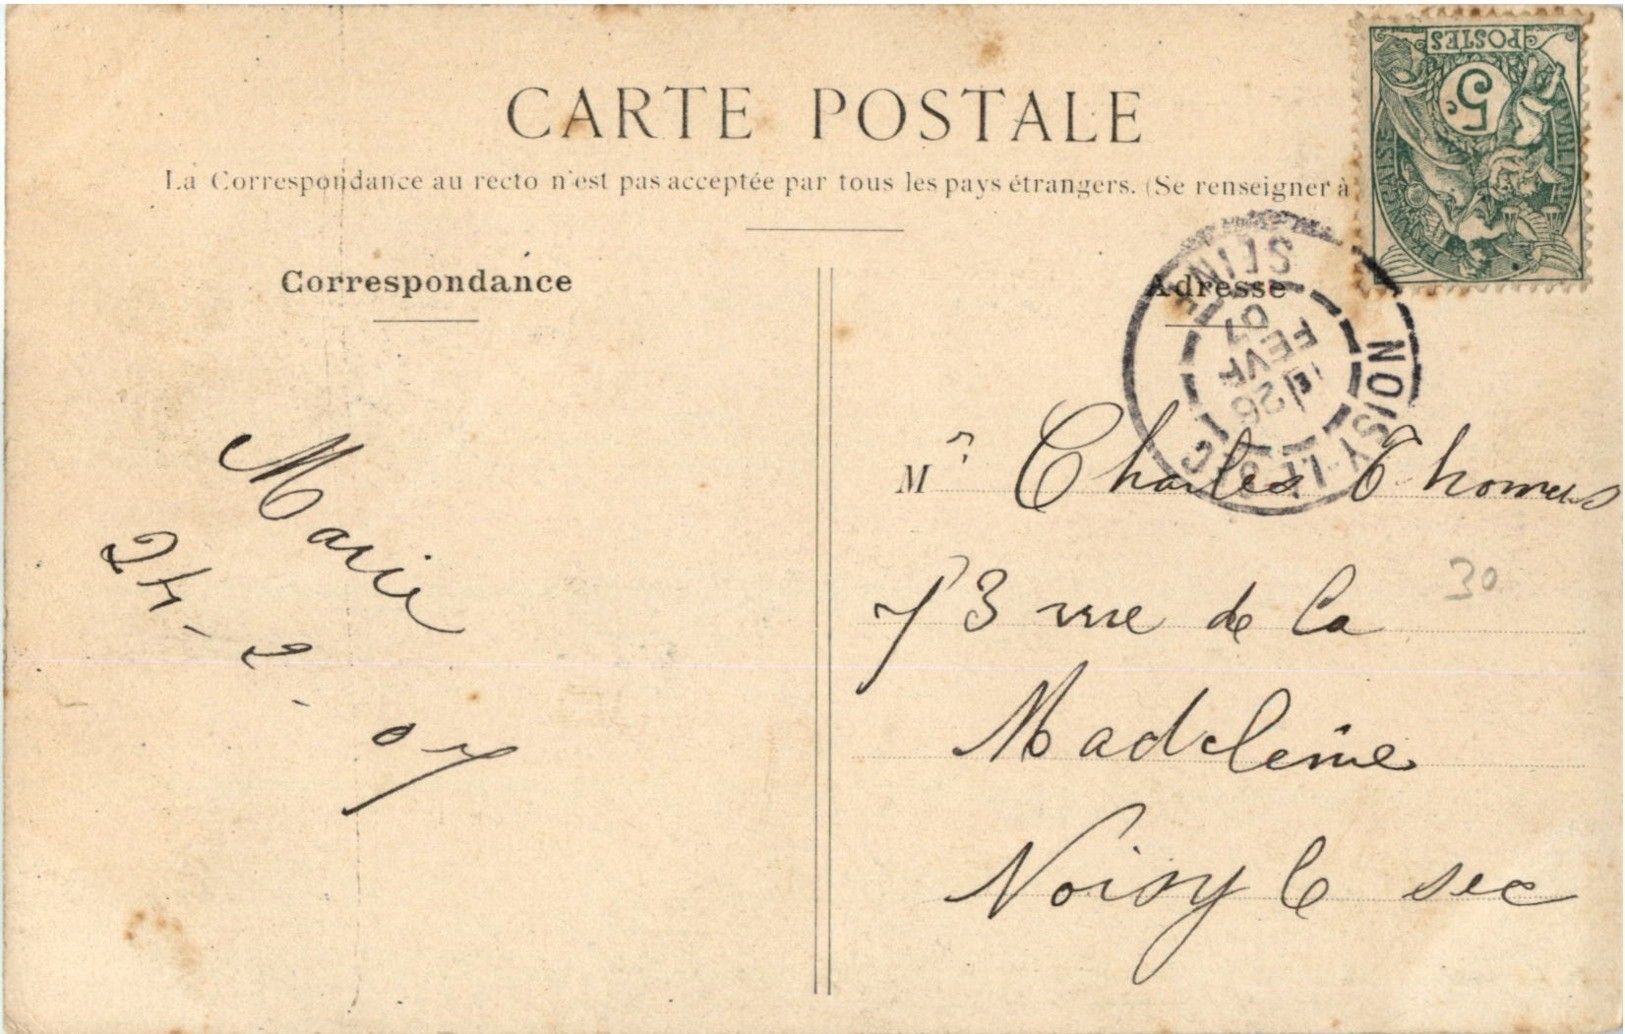 CARTE POSTALE
La Correspondance au recto n'est pas acceptée par tous les pays étrangers. (Se renseigner à
Correspondance
Adresse
POSTES
5c
NOISY-LE-SEC
SEINE
26
FEVR
07
Mr Charles Thomas
73 rue de la
Madeleine
Noisy le sec
30
Marie
24-2-07